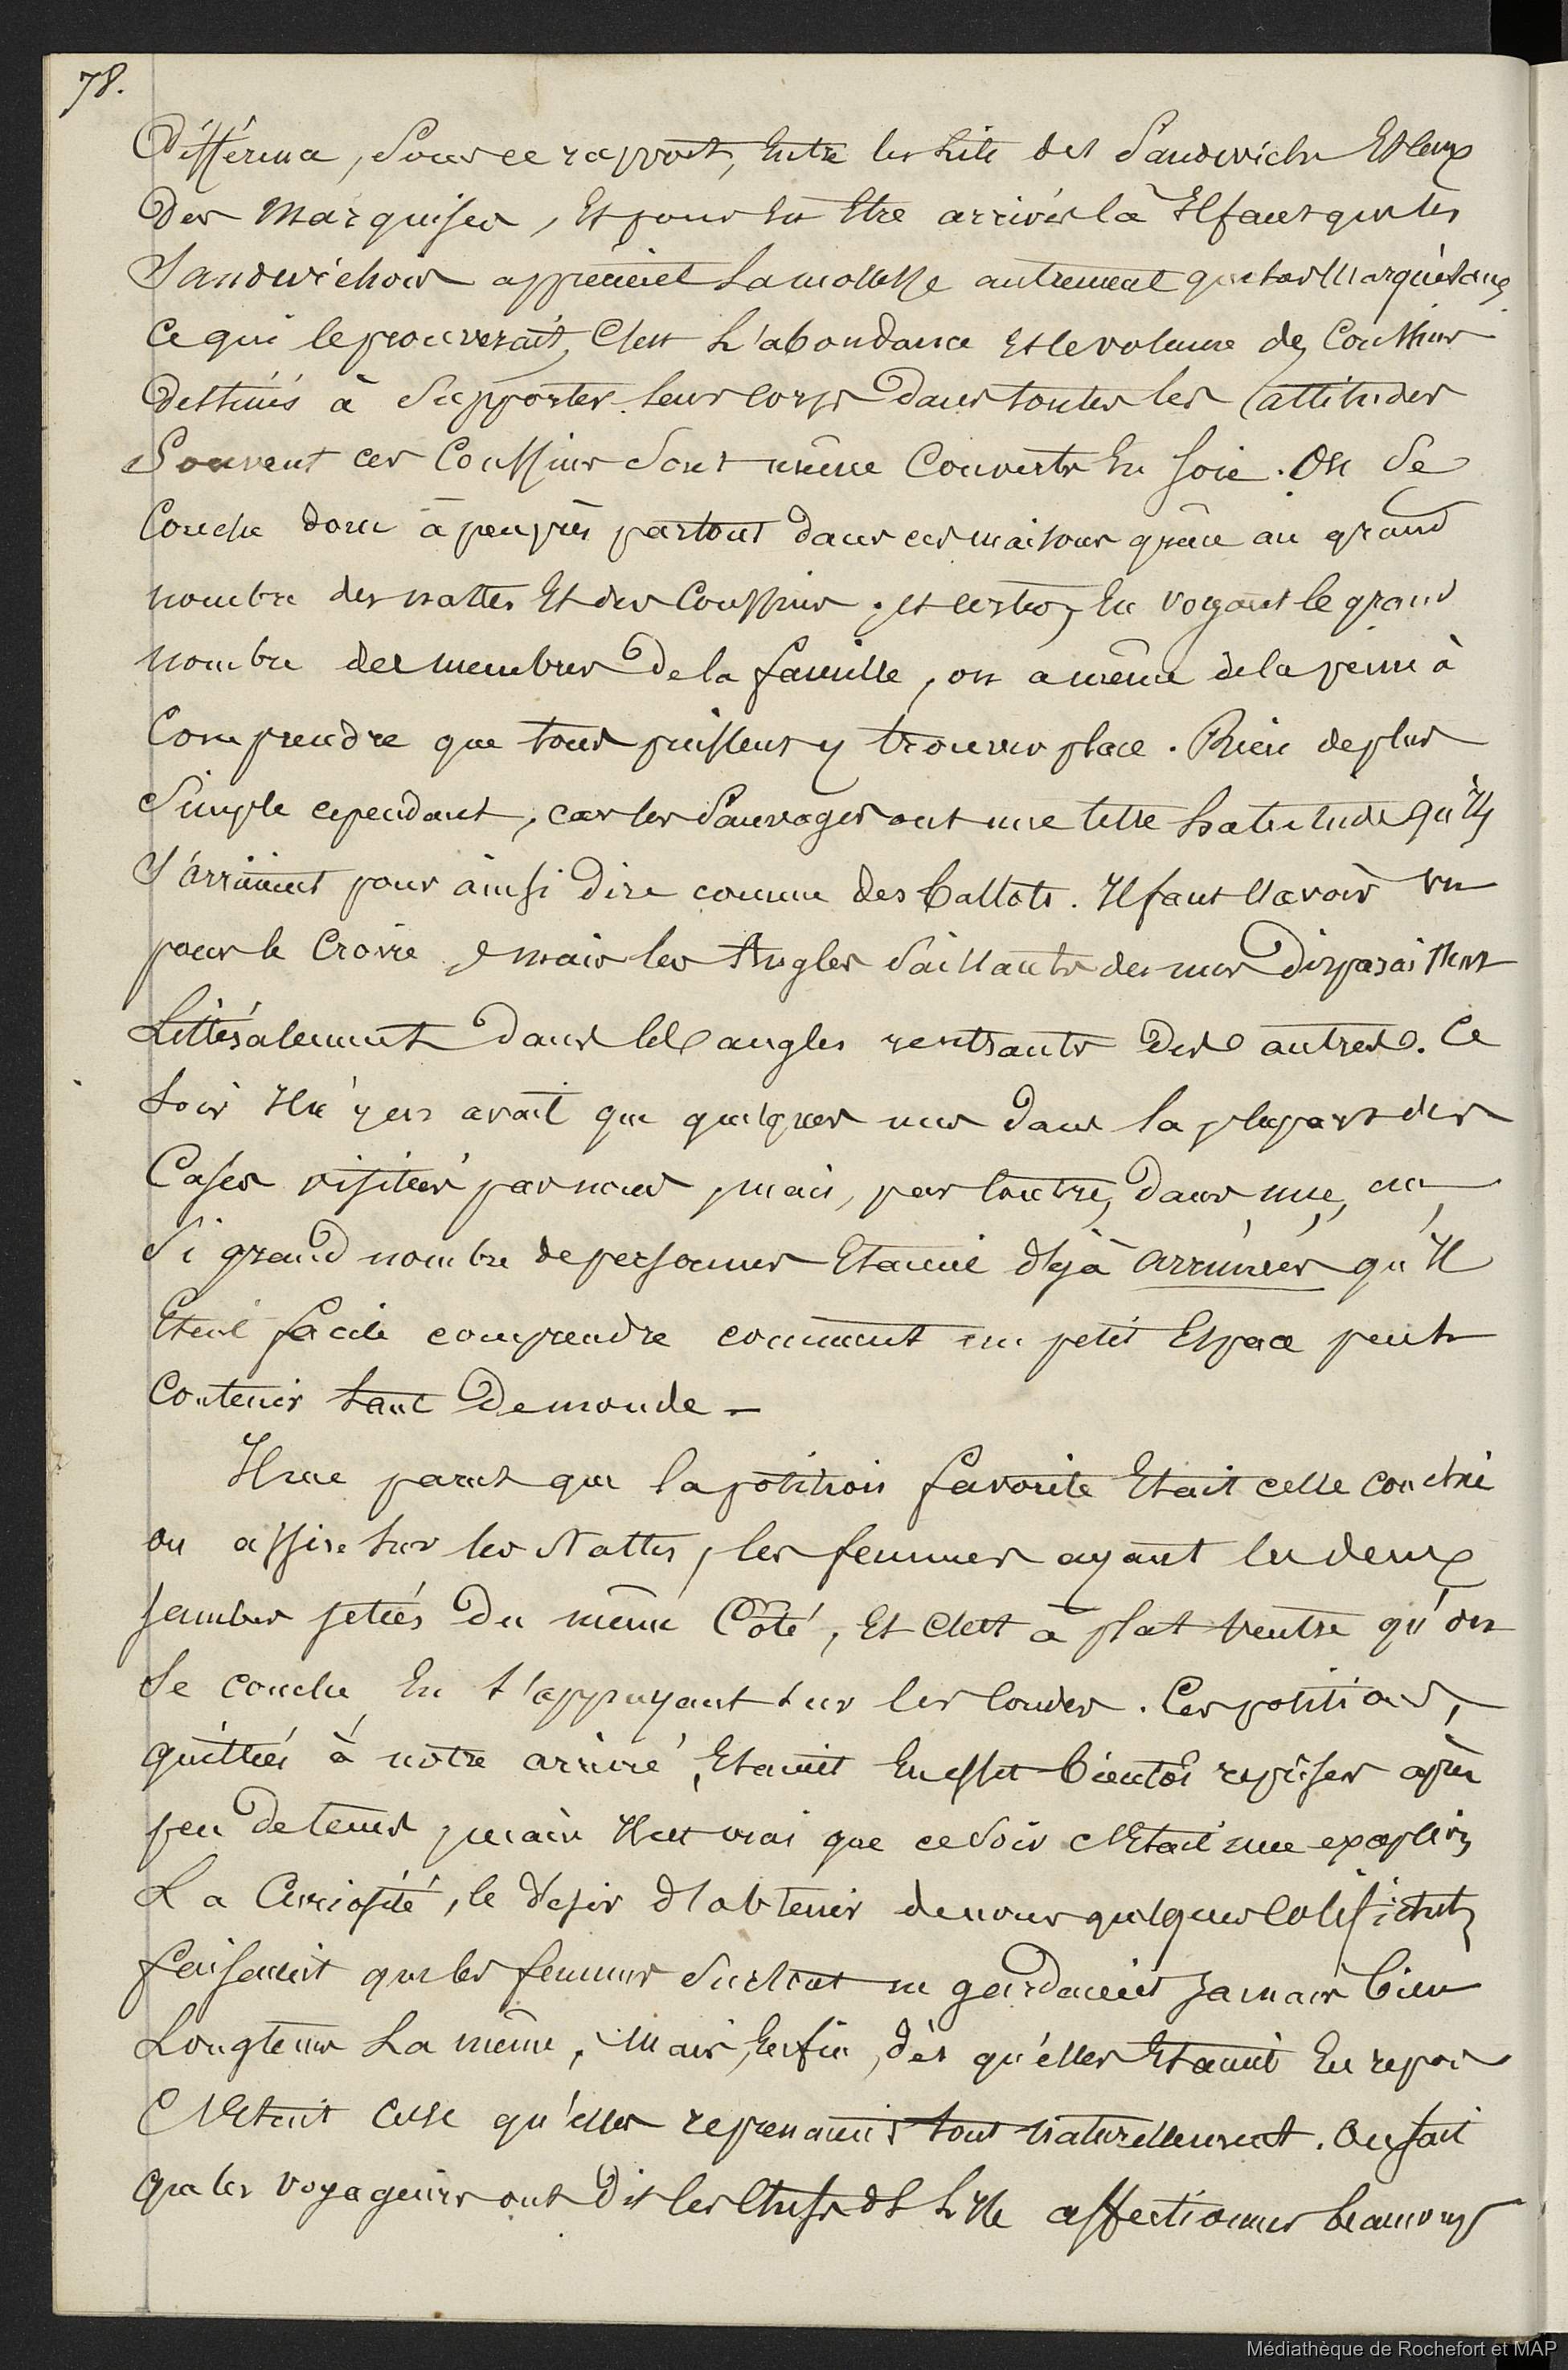 78.
différence, sous ce rapport, entre les lits des Sandwichs et ceux
des Marquises, et pour en être arrivés là il faut que les
Sandwichois apprécient la mollesse autrement que les Marquésans
Ce qui le prouverait, c'est l'abondance et le volume des coussins
destinés à supporter leur corps dans toutes les attitudes
Souvent ces coussins sont même couverts en soie. On se
couche donc à peu près partout dans ces maisons grâce au grand
nombre des nattes et des coussins. et certes, en voyant le grand
nombre des membres de la famille, on a même de la peine à
comprendre que tous puissent y trouver place. Rien de plus
simple cependant, car les sauvages ont une telle habitude qu'ils
s'arriment pour ainsi dire comme des ballots. Il faut l'avoir vu
pour le croire, mais les angles saillants des uns disparaissent
littéralement dans les angles rentrants des autres. Ce
soir il n'y en avait que quelques uns dans la plupart des
cases visitées par nous, mais, par contre, dans une, un
si grand nombre de personnes étaient déjà arrimées qu'il
était facile comprendre comment un petit espace peut
contenir tant de monde —
Il me parut que la position favorite était celle couchée
ou assise sur les nattes, les femmes ayant les deux
jambes jetées du même côté, et c'est à plat ventre qu'on
se couche en s'appuyant sur les coudes. Ces positions,
quittées à notre arrivé, étaient en effet bientôt reprises après
peu de tems, mais il est vrai que ce soir c'était une exception
La curiosité, le désir d'obtenir de nous quelques colifichets
faisaient que les femmes surtout ne gardaient jamais bien
longtems la même, mais, enfin, dès qu'elles étaient en repos
c'était celle qu'elles reprenaient tout naturellement. On sait
que les voyageurs ont dit les chefs de l'île affectionner beaucoup
Médiathèque de Rochefort et MAP